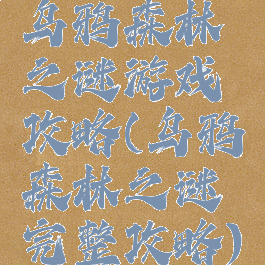 乌鸦森林
之谜游戏
攻略(乌鸦
森林之谜
完整攻略)